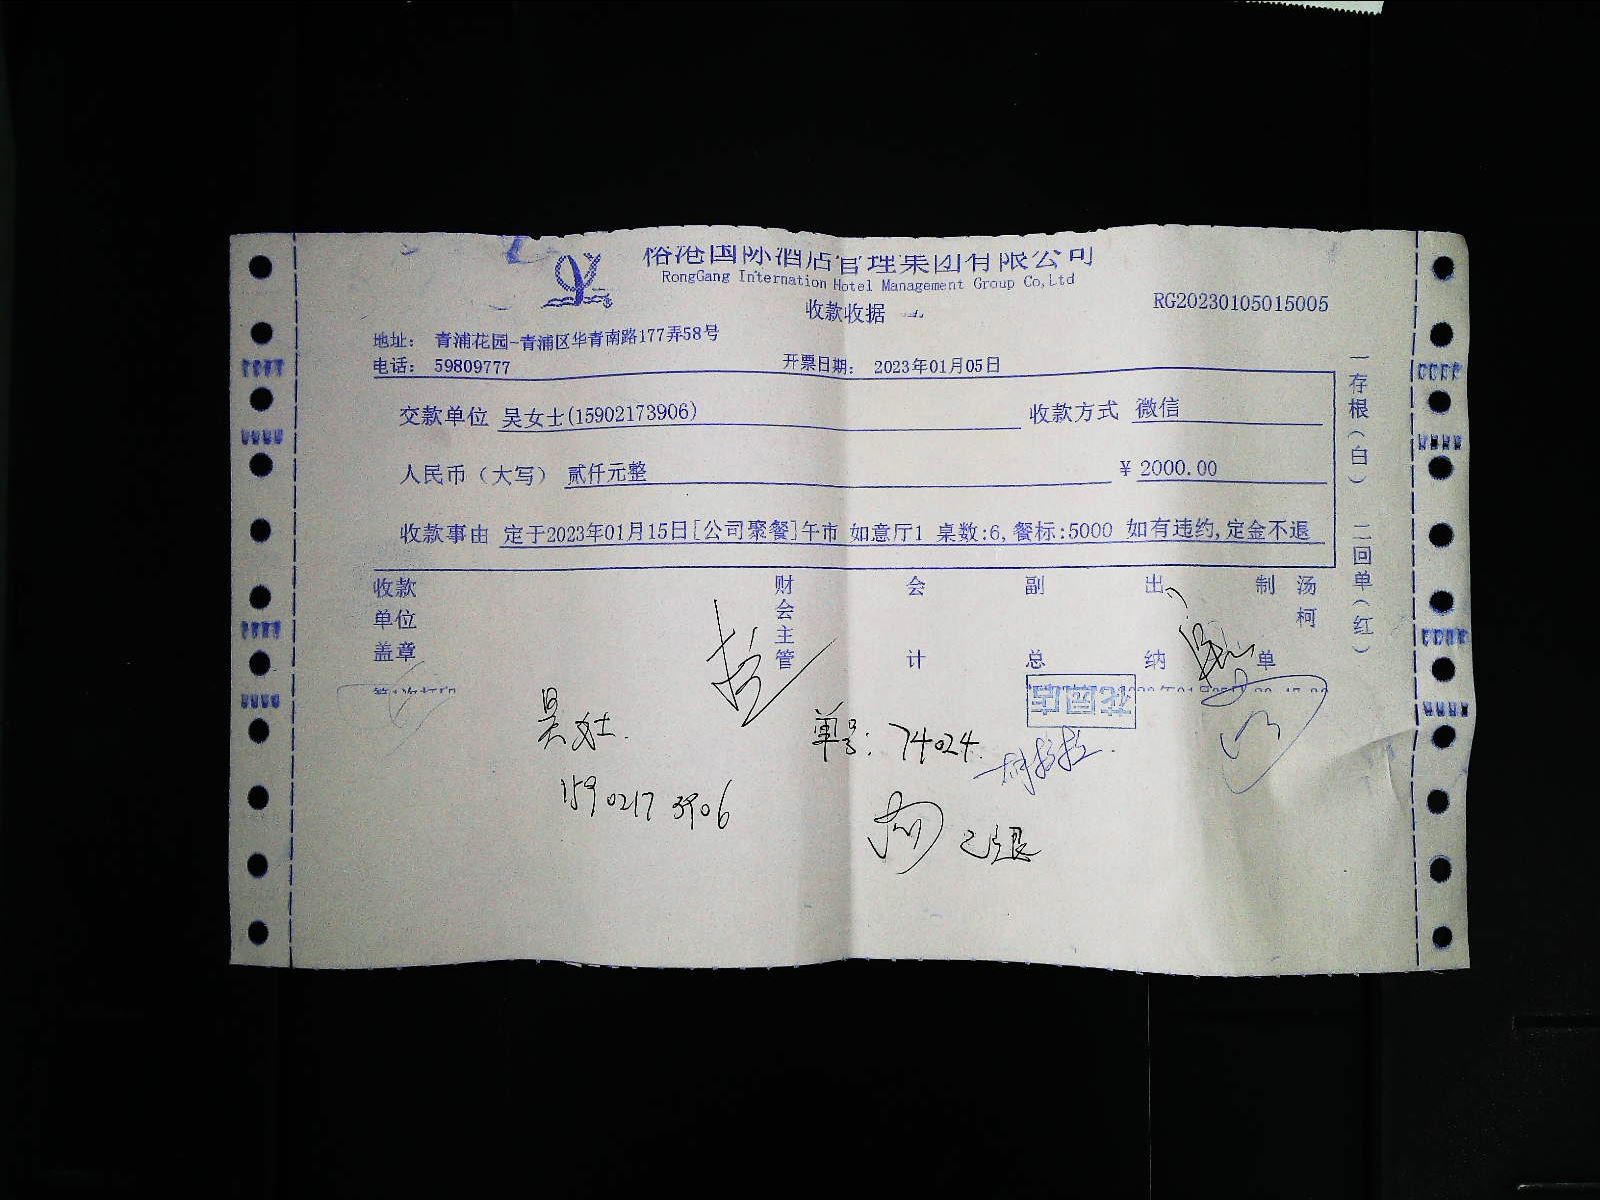 裕港国际酒店管理集团有限公司
RongGang Internation Hotel Management Group Co,Ltd
收款收据
RG20230105015005
地址： 青浦花园-青浦区华青南路177弄58号
电话： 59809777 开票日期： 2023年01月05日
交款单位 吴女士(15902173906) 收款方式 微信
人民币（大写） 贰仟元整 ¥ 2000.00
收款事由 定于2023年01月15日[公司聚餐]午市 如意厅1 桌数:6,餐标:5000 如有违约,定金不退
收款单位盖章 财会主管 会计 副总 出纳 制单 汤柯
一存根（白） 二回单（红）
花园店
吴女士.
单号: 74024.
159 0217 3906
已退